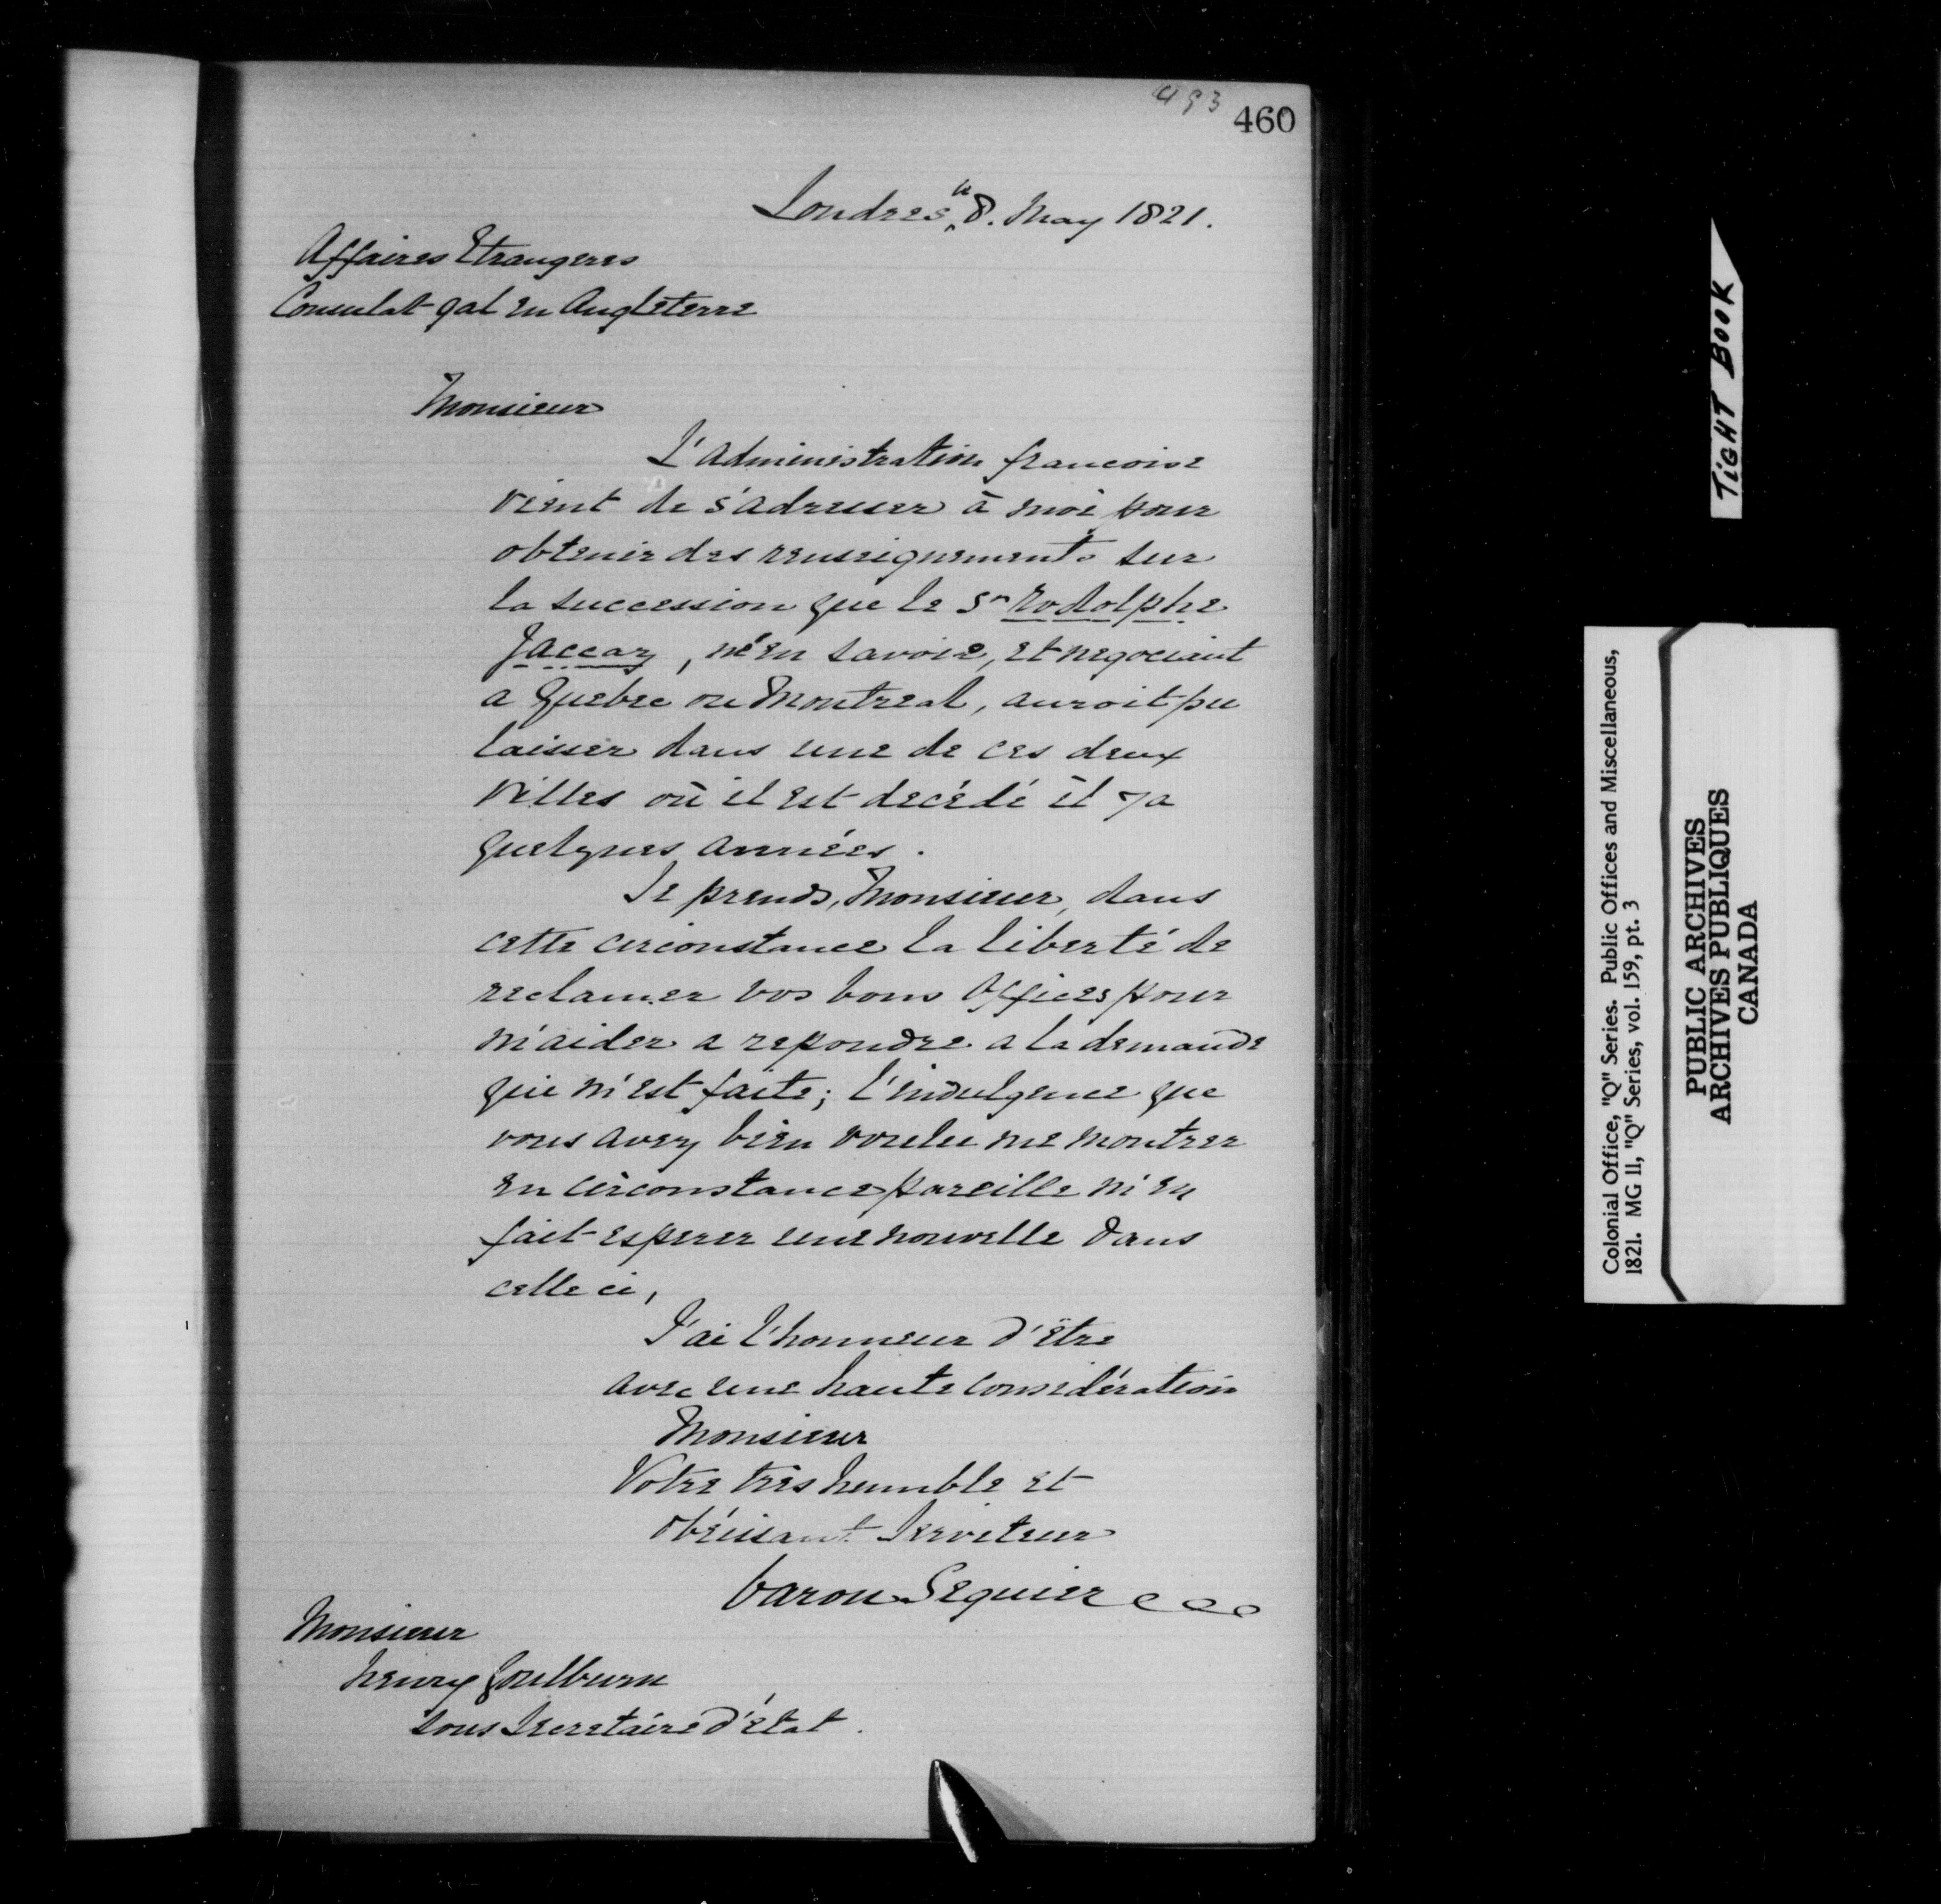 493
460
Londres, le 8. May 1821.
Affaires Etrangeres
Consulat gal en Angleterre
Monsieur
L'administration francoise
vient de s'adresser à moi pour
obtenir des renseignements sur
la succession que le Sr Rodolphe
Jaccaz, né en Savoie, et negociant
a Quebec ou Montreal, auroit pu
laisser dans une de ces deux
villes où il est decédé il y a
quelques années.
Je prends, Monsieur, dans
cette circonstance la liberté de
reclamer vos bons offices pour
m'aider a repondre a la demande
qui m'est faite; l'indulgence que
vous avez bien voulu me montrer
en circonstance pareille m'en
fait esperer une nouvelle dans
celle ci,
J'ai l'honneur d'être
avec une haute considération
Monsieur
Votre très humble et
obéissant Serviteur
baron Seguier
Monsieur
henry Goulburn
sous Secretaire d'état.
TIGHT BOOK
Colonial Office, "Q" Series. Public Offices and Miscellaneous,
1821. MG 11, "Q" Series, vol. 159, pt. 3
PUBLIC ARCHIVES
ARCHIVES PUBLIQUES
CANADA